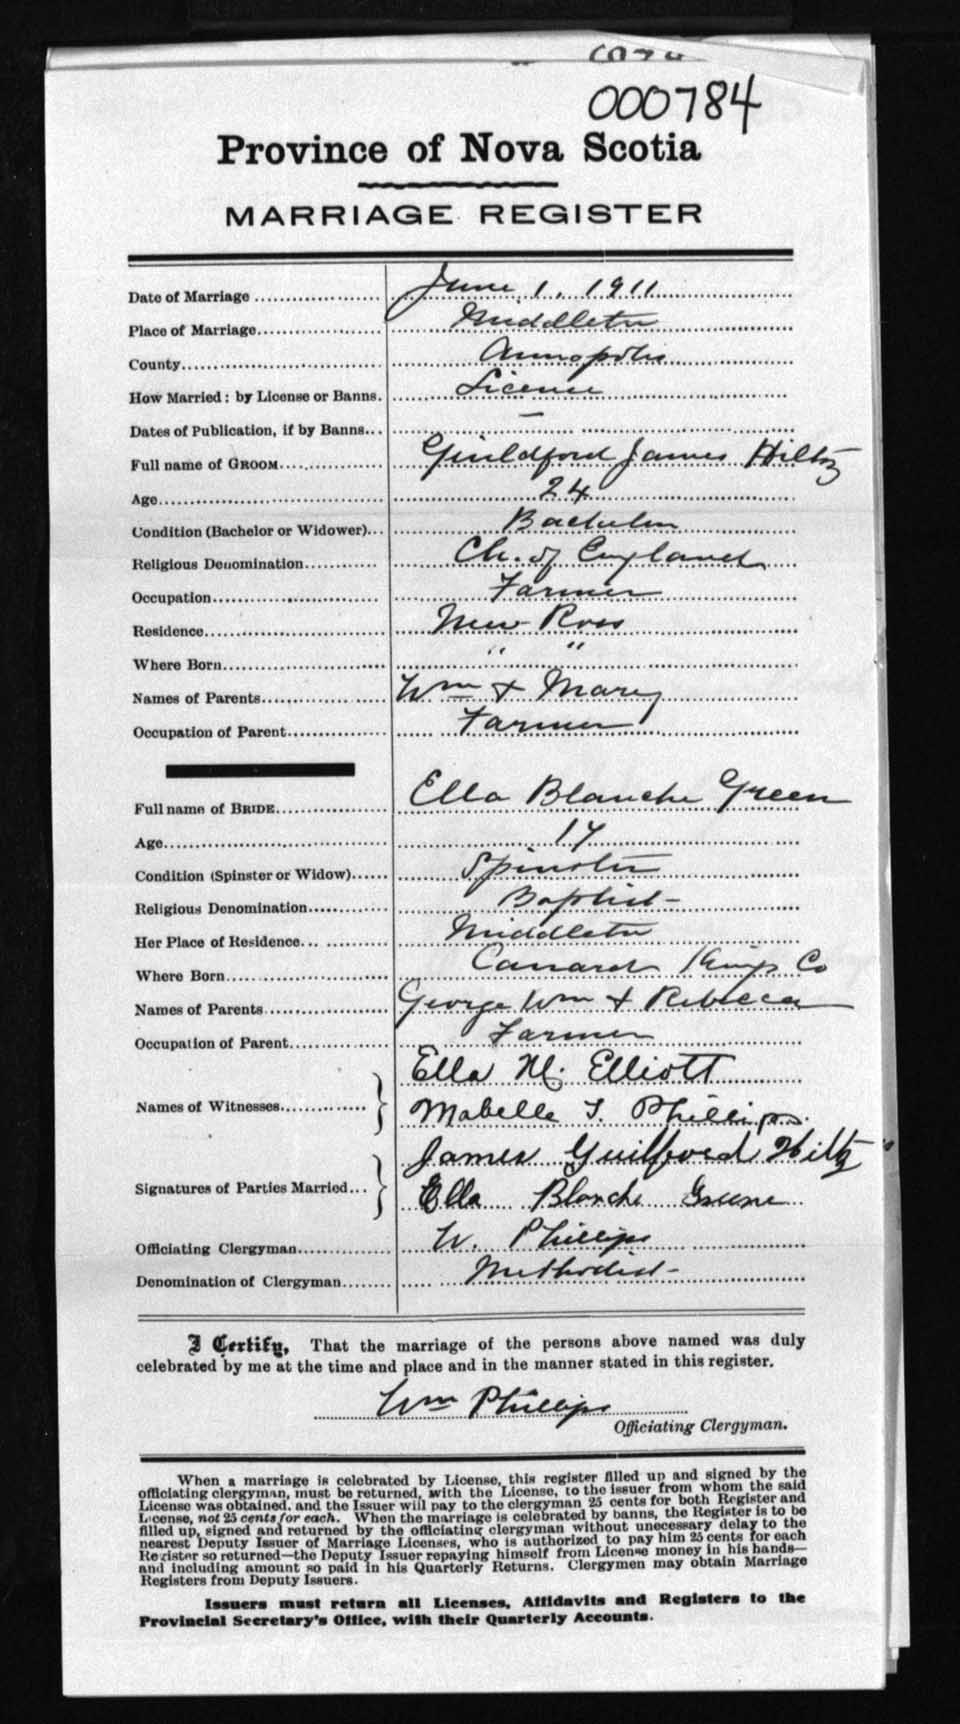 000784
Province of Nova Scotia
MARRIAGE REGISTER
Date of Marriage ..................... June 1, 1911
Place of Marriage..................... Middleton
County..................... Annapolis
How Married: by License or Banns. License
Dates of Publication, if by Banns... —
Full name of GROOM..................... Guildford James Hiltz
Age..................... 24
Condition (Bachelor or Widower)... Bachelor
Religious Denomination............ Ch. of England
Occupation..................... Farmer
Residence..................... New Ross
Where Born..................... " "
Names of Parents..................... Wm & Mary
Occupation of Parent................ Farmer
Full name of BRIDE................ Ella Blanche Green
Age..................... 17
Condition (Spinster or Widow)...... Spinster
Religious Denomination............ Baptist
Her Place of Residence... ............ Middleton
Where Born..................... Canard Kings Co
Names of Parents..................... George Wm & Rebecca
Occupation of Parent................ Farmer
Names of Witnesses.............. Ella M. Elliott
Mabelle S. Phillips
Signatures of Parties Married... James Guilford Hiltz
Ella Blanche Greene
Officiating Clergyman.............. W. Phillips
Denomination of Clergyman........ Methodist
I Certify, That the marriage of the persons above named was duly
celebrated by me at the time and place and in the manner stated in this register.
Wm Phillips
Officiating Clergyman.
When a marriage is celebrated by License, this register filled up and signed by the
officiating clergyman, must be returned, with the License, to the issuer from whom the said
License was obtained, and the Issuer will pay to the clergyman 25 cents for both Register and
License, not 25 cents for each. When the marriage is celebrated by banns, the Register is to be
filled up, signed and returned by the officiating clergyman without unecessary delay to the
nearest Deputy Issuer of Marriage Licenses, who is authorized to pay him 25 cents for each
Register so returned—the Deputy Issuer repaying himself from License money in his hands—
and including amount so paid in his Quarterly Returns. Clergymen may obtain Marriage
Registers from Deputy Issuers.
Issuers must return all Licenses, Affidavits and Registers to the
Provincial Secretary's Office, with their Quarterly Accounts.